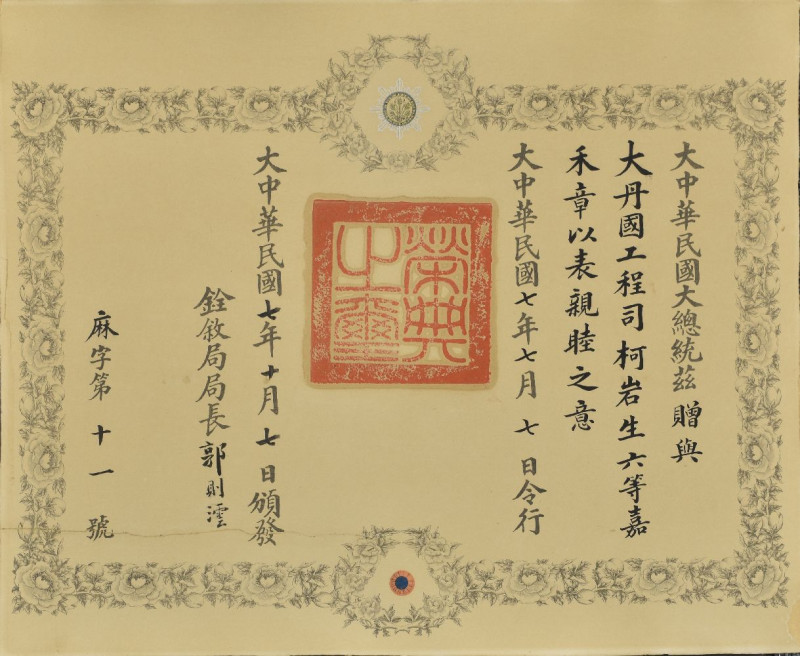 大中華民國大總統茲贈與
大丹國工程司柯岩生六等嘉
禾章以表親睦之意
大中華民國七年七月七日令行
榮典之璽
大中華民國七年十月七日頒發
銓敘局局長郭則澐
麻字第十一號